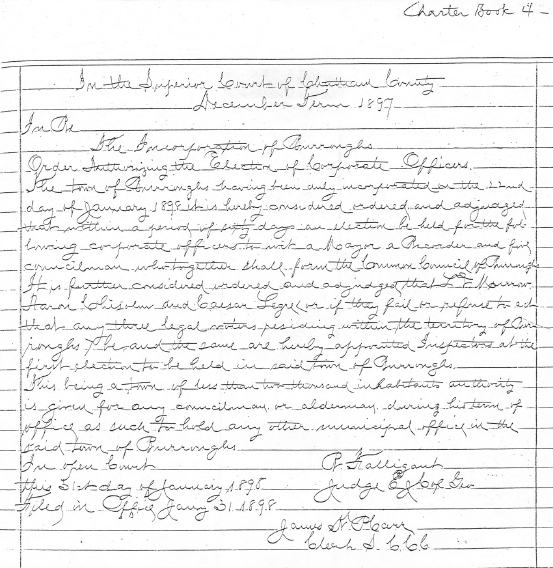 Charter Book 4 -
In the Superior Court of Chatham County
December Term 1897
In Re
The Incorporation of Burroughs
Order Authorizing the Election of Corporate Officers.
The town of Burroughs having been duly incorporated on the 22nd
day of January 1898 it is hereby considered ordered and adjudged
that within a period of sixty days an election be held for the fol-
lowing corporate officers to wit a Mayor a Recorder and five
councilman who together shall form the Common Council of Burroughs
It is further considered ordered and adjudged that
Aaron and Caesar or if they fail or refuse to act
that any three legal voters residing within the territory of Bur-
roughs be and the same are hereby appointed Inspectors at the
first election to be held in said town of Burroughs.
This being a town of less than two thousand inhabitants authority
is given for any councilman or alderman during his term of
office as such to hold any other municipal office in the
said town of Burroughs
In open Court R. Falligant
this 31st day of January 1898 Judge E J C of Ga
Filed in Office Jany 31. 1898
James K. P. Carr
Clerk S. C. C. C.